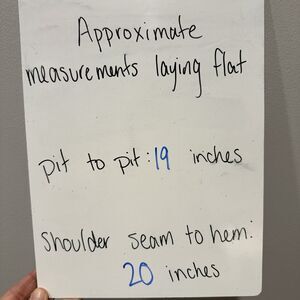 Approximate
measurements laying flat
pit to pit: 19 inches
Shoulder seam to hem:
20 inches